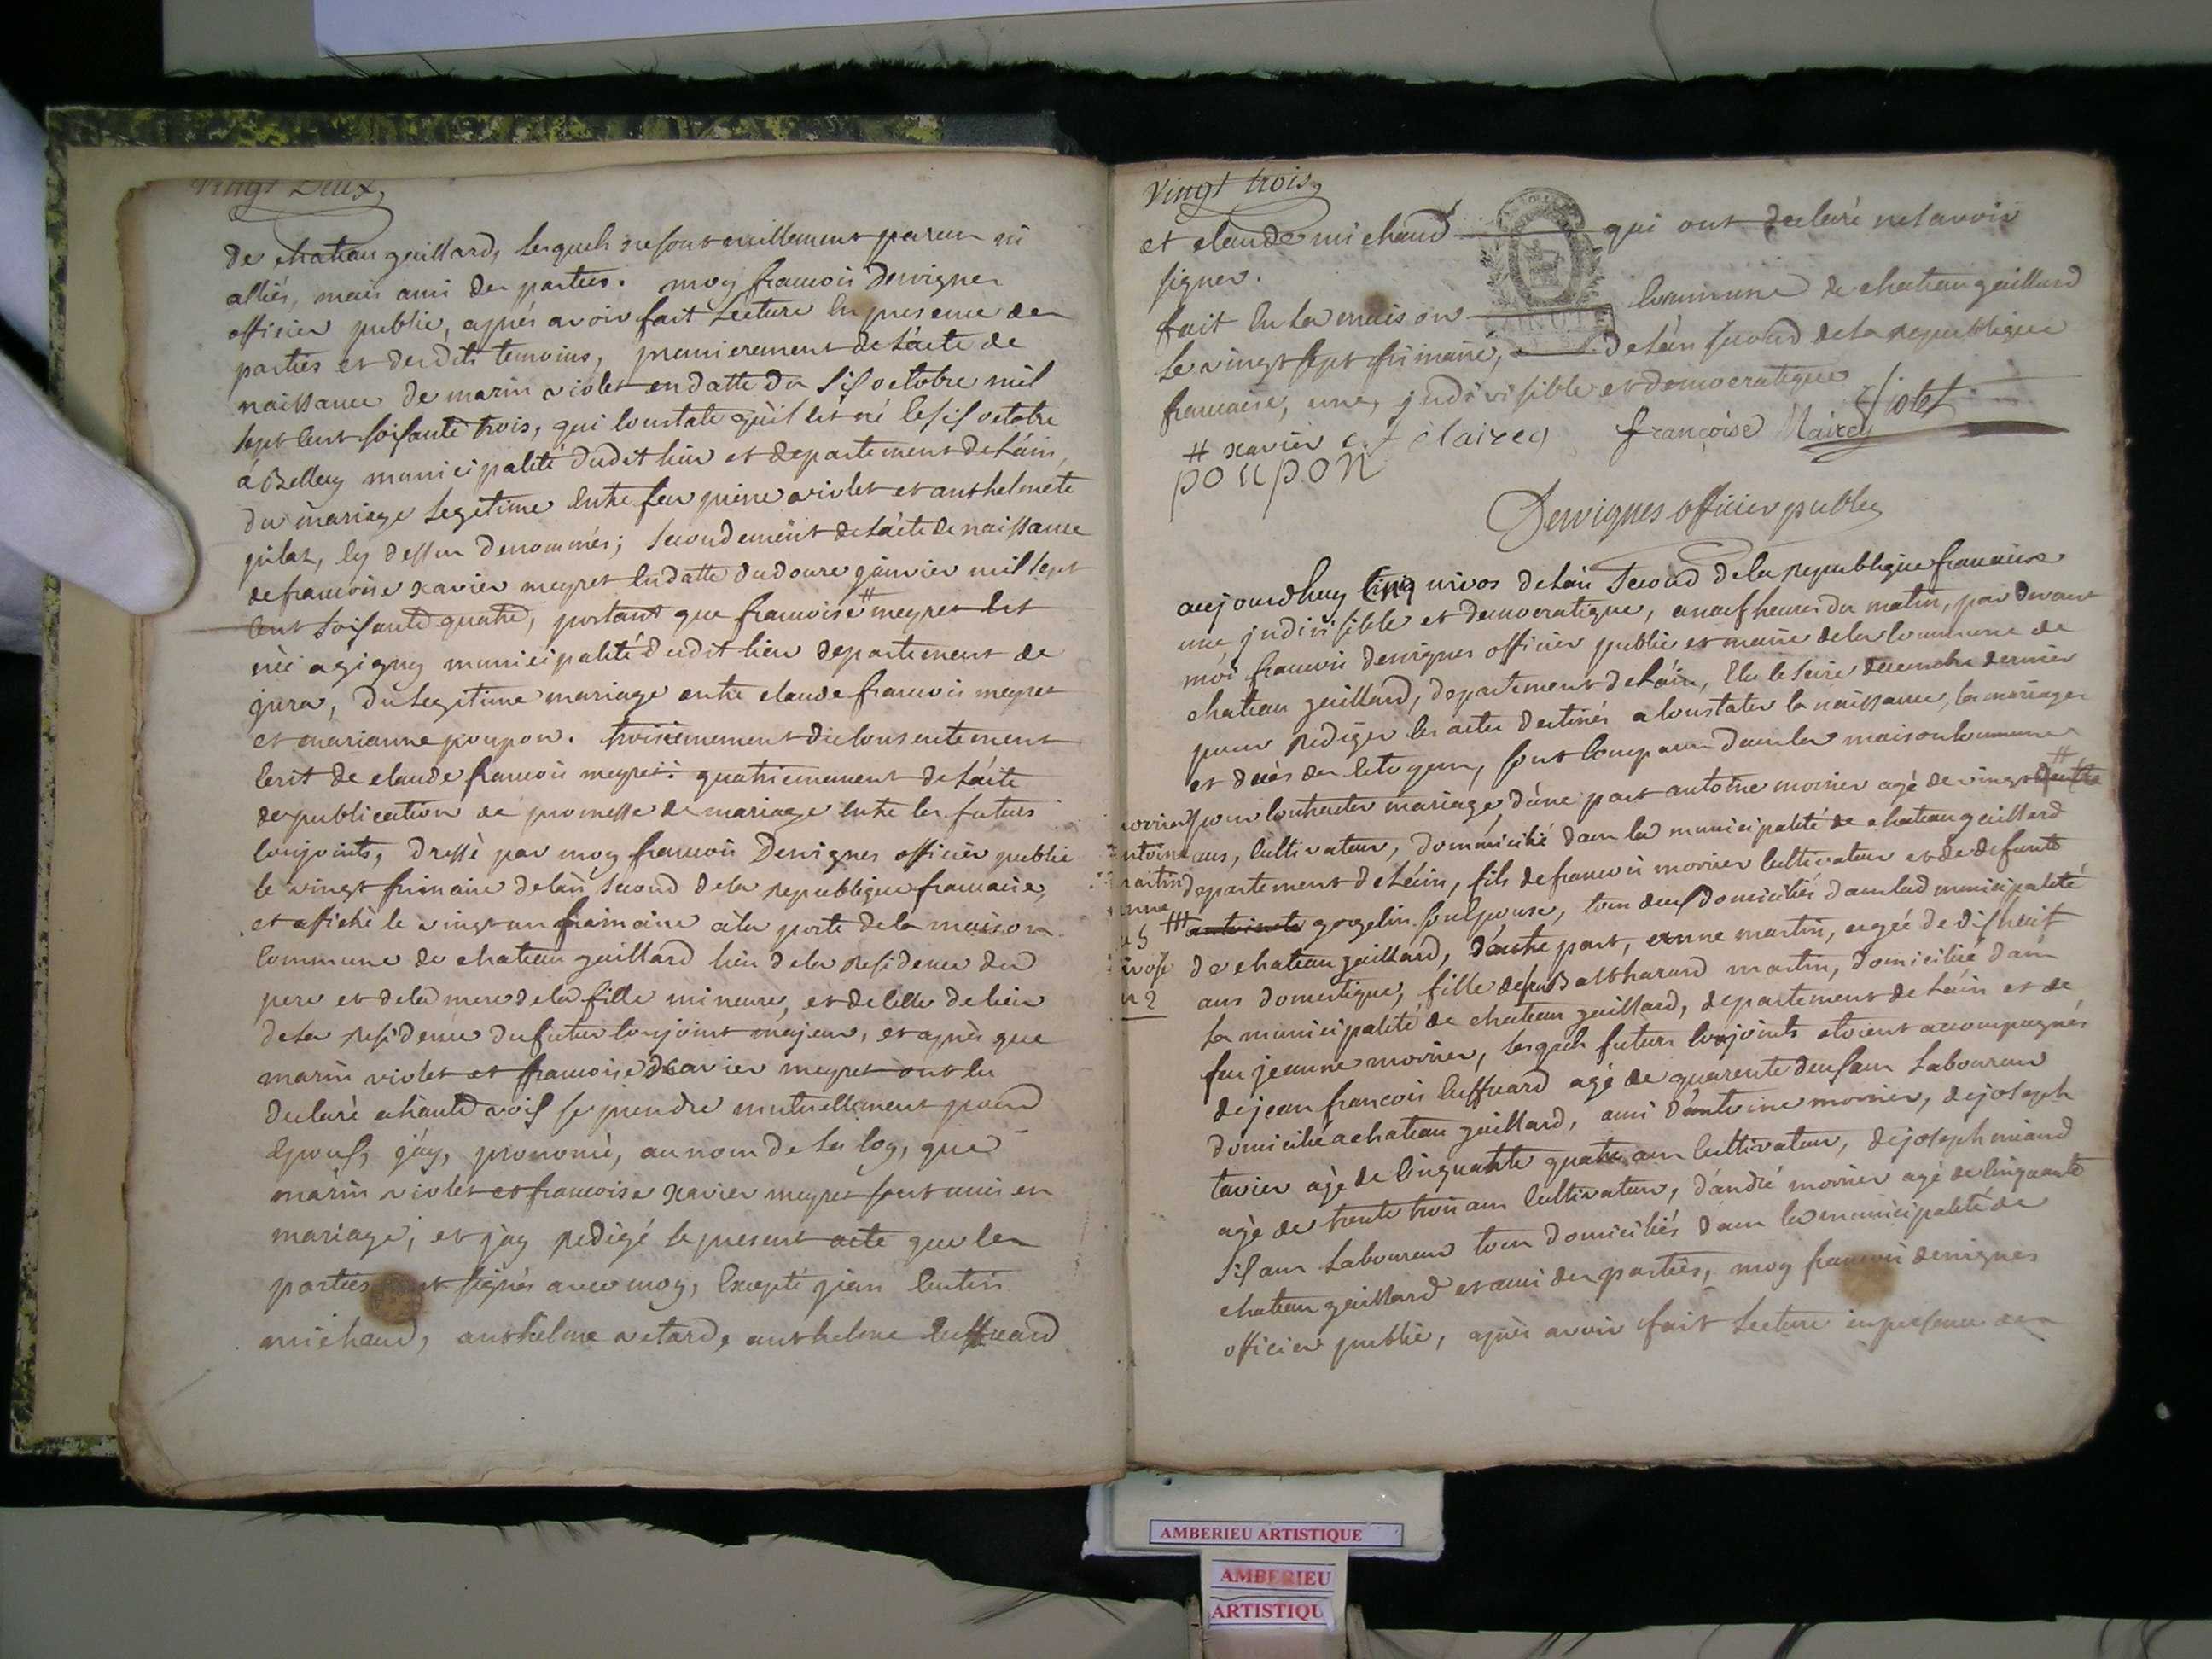 Vingt Deux
de chateau gaillard, lesquels ne sont nullement parens ni
alliés, mais ami des parties. moy francois Dervignes
officier public, aprés avoir fait Lecture en presence des
parties et desdits temoins, premierement de L'acte de
naissance de marin violet en datte du six octobre mil
sept cent soixante trois, qui constate qu'il est né le six octobre
à Belley municipalité dudit lieu et departement de L'ain,
du mariage Legitime entre feu pierre violet et anthelmete
gilat, cy dessus denommés; secondement de L'acte de naissance
de francoise xavier meyret en datte du douze janvier mil sept
cent soixante quatre, portant que francoise # meyret est
née a gigny municipalité dudit lieu departement de
jura, du Legitime mariage entre claude francois meyret
et marianne poupon. troisiemement du consentement
ecrit de claude francois meyret: quatriemement de L'acte
de publication de promesse de mariage entre les futurs
conjoints, dressé par moy francois Dervignes officier public
le vingt frimaire de L'an second de la republique francaise,
et affiché le vingt un frimaire à la porte de la maison
commune de chateau gaillard lieu de la residence du
pere et de la mere de la fille mineure, et de celle de lieu
de la residence du futur conjoint majeur, et après que
marin violet et francoise xavier meyret ont eu
declaré a haute voix se prendre mutuellement pour
epoux, j'ay, prononcé, au nom de la loy, que
marin violet et francoise xavier meyret sont unis en
mariage, et j'ay redigé le present acte que les
parties ont signés avec moy, Excepté jean
michaud, anthelme retard, anthelme cuffuard
Vingt trois
et claude michaud qui ont declaré ne savoir
signer.
fait en la maison commune de chateau gaillard
Le vingt sept frimaire, de L'an second de la republique
francaise, une, indivisible et democratique
# xavier françoise Mairey Violet
poupon
Dervignes officier public
aujourdhuy cinq nivos de L'an second de la republique francaise
une, indivisible et democratique, a neuf heures du matin, par devant
moi francois dervignes officier public et maire de la commune de
chateau gaillard, departement de L'ain, Elu le seize decembre dernier
pour rediger les actes destinés a constater la naissance, les mariages
et decès des citoyens, sont comparu dans la maison commune
pour contracter mariage, d'une part antoine morier agé de vingt #
ans, cultivateur, dommicilié dans la municipalité de chateau gaillard
departement de L'ain, fils de francois morier cultivateur et de defunte
### antoinete gogelin son epouse, tous deux domiciliés dans lad municipalité
de chateau gaillard, d'autre part, anne martin, agée de dix huit
ans domestique, fille de feu Balthazard martin, domiciliée dans
La municipalité de chateau gaillard, departement de L'ain et de
feu jeanne morier, lesquels futurs conjoints etoient accompagnés
de jean francois cuffuard agé de quarente deux ans Laboureur
domicilié a chateau gaillard, ami d'antoine morier, de joseph
tavier agé de cinquante quatre ans cultivateur, de joseph miand
agé de trente trois ans cultivateur, d'andré morier agé de cinquante
six ans Laboureur tous domiciliés dans la municipalité de
chateau gaillard et ami des parties, moy francois dervignes
officier public, après avoir fait Lecture en presence des
morier
antoine
martin
anne
5
nivose
an 2
AMBERIEU ARTISTIQUE
AMBERIEU
ARTISTIQU